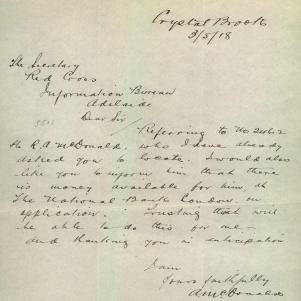 Crystal Brook
3/5/18
The Secretary
Red Cross
Information Bureau
Adelaide
Dear Sir/
Referring to No 2462
Pte R.A. McDonald. who I have already
asked you to locate. I would also
like you to inform him that there
is money available for him, at
The National Bank London, on
application. Trusting that will
be able to do this for me –
and thanking you in anticipation
I am
Yours faithfully
A McDonald